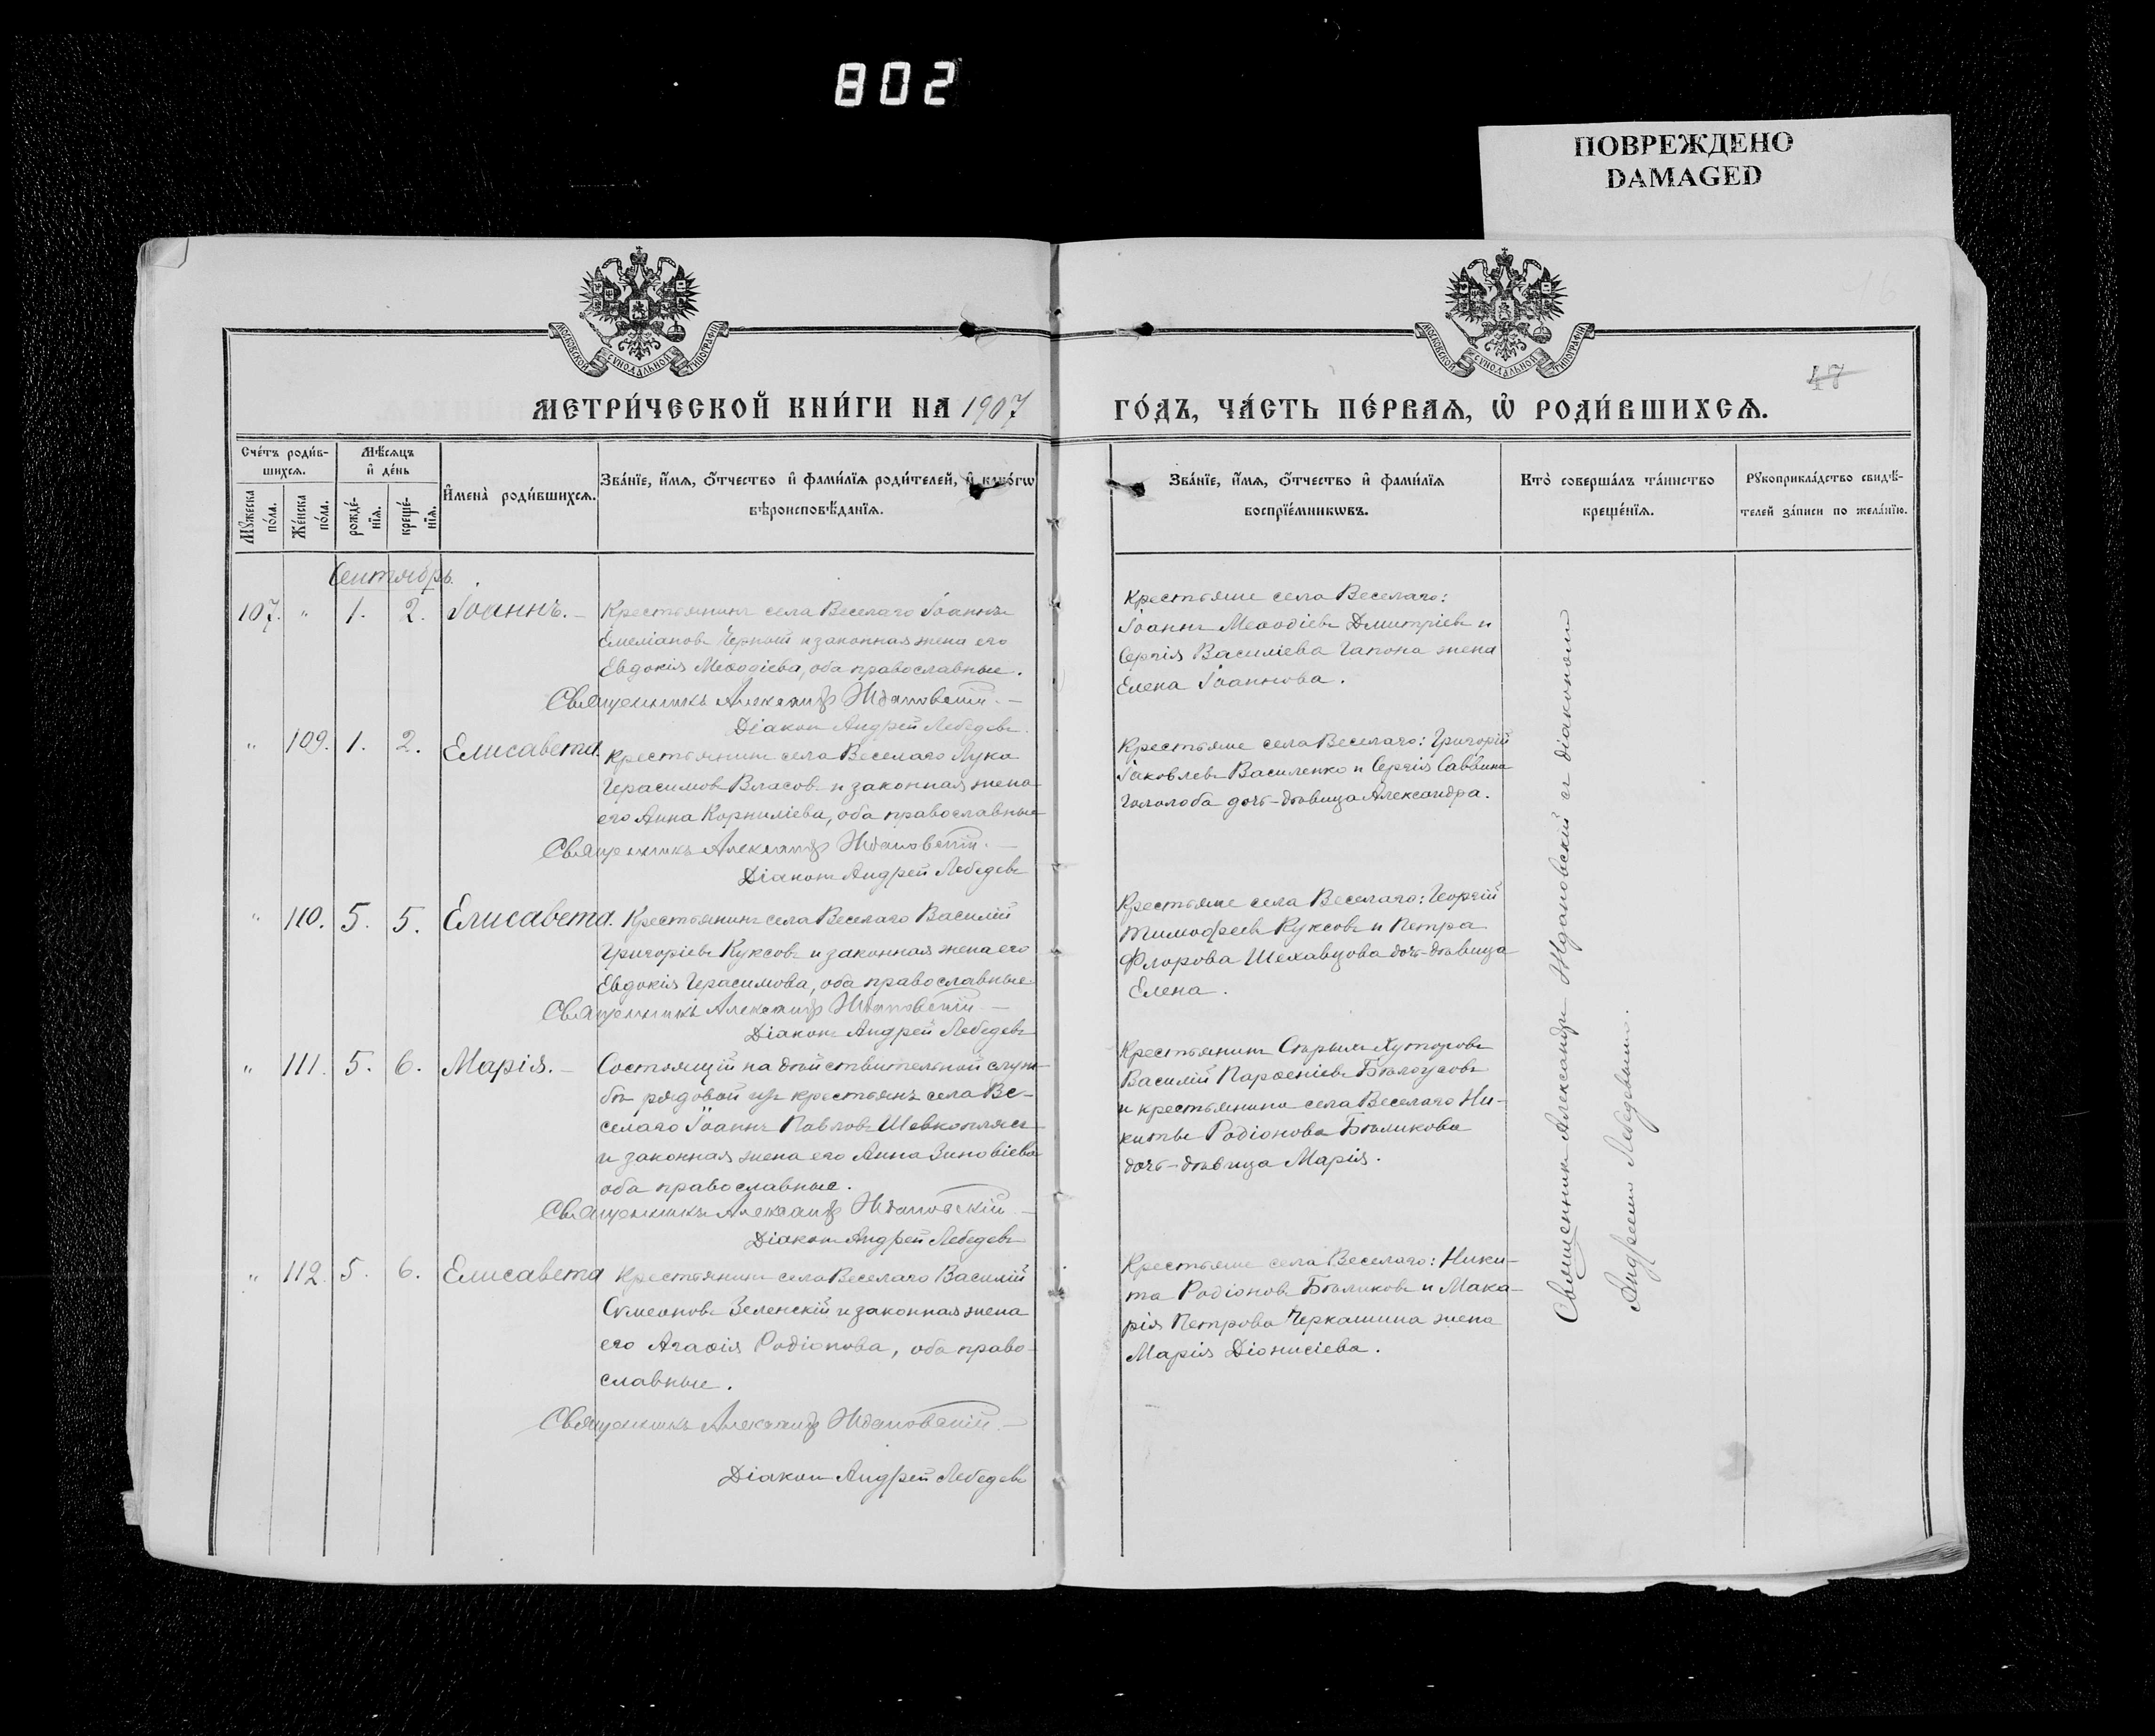 802
ПОВРЕЖДЕНО
DAMAGED
МОСКОВСКОЙ СѴНОДАЛЬНОЙ ТИПОГРАФІИ
МОСКОВСКОЙ СѴНОДАЛЬНОЙ ТИПОГРАФІИ
47
МЕТРИ́ЧЕСКОЙ КНИ́ГИ НА 1907
ГО́ДЪ, ЧА́СТЬ ПЕ́РВАѦ, Ѽ РОДИ́ВШИХСѦ.
Сче́тъ роди́в-
шихсѧ.
Мꙋ́жеска по́ла.
Же́нска по́ла.
Мѣ́сѧцъ
и҆ де́нь
рожде́-
нїѧ.
креще́-
нїѧ.
И҆мена̀ роди́вшихсѧ.
Зва́нїе, и҆́мѧ, ѻ҆́тчество и҆ фами́лїѧ роди́телей, и҆ како́гѡ
вѣроисповѣ́данїѧ.
Зва́нїе, и҆́мѧ, ѻ҆́тчество и҆ фами́лїѧ
воспрїе́мникѡвъ.
Кто̀ соверша́лъ та́инство
креще́нїѧ.
Рꙋкоприкла́дство свидѣ́-
телей за́писи по жела́нїю.
Сентябрь.
107. " 1. 2. Іоаннъ.
Крестьянинъ села Веселаго Іоаннъ
Емеліановъ Черный и законная жена его
Евдокія Меѳодіева, оба православные.
Священникъ Александръ Ждановскій.
Діаконъ Андрей Лебедевъ.
Крестьяне села Веселаго:
Іоаннъ Меѳодіевъ Дмитріевъ и
Сергія Василіева Гапона жена
Елена Іоаннова.
" 109. 1. 2. Елисавета.
Крестьянинъ села Веселаго Лука
Герасимовъ Власовъ и законная жена
его Анна Корниліева, оба православные
Священникъ Александръ Ждановскій.
Діаконъ Андрей Лебедевъ
Крестьяне села Веселаго: Григорій
Іаковлевъ Василенко и Сергія Саввина
Гололоба дочь-дѣвица Александра.
" 110. 5. 5. Елисавета.
Крестьянинъ села Веселаго Василій
Григоріевъ Куксовъ и законная жена его
Евдокія Герасимова, оба православные
Священникъ Александръ Ждановскій
Діаконъ Андрей Лебедевъ
Крестьяне села Веселаго: Георгій
Тимофеевъ Куксовъ и Петра
Флорова Шехавцова дочь-дѣвица
Елена.
" 111. 5. 6. Марія.
Состоящій на дѣйствительной служ-
бѣ рядовой изъ крестьянъ села Ве-
селаго Іоаннъ Павловъ Шевкоплясъ
и законная жена его Анна Зиновіева
оба православные.
Священникъ Александръ Ждановскій
Діаконъ Андрей Лебедевъ
Крестьянинъ Хуторовъ
Василій Парѳеніевъ Бѣлоусовъ
и крестьянина села Веселаго Ни-
киты Родіонова Бѣликова
дочь-дѣвица Марія.
" 112. 5. 6. Елисавета
Крестьянинъ села Веселаго Василій
Сѵмеоновъ Зеленскій и законная жена
его Агаѳія Родіонова, оба право-
славные.
Священникъ Александръ Ждановскій.
Діаконъ Андрей Лебедевъ
Крестьяне села Веселаго: Ники-
та Родіоновъ Бѣликовъ и Мака-
рія Петрова Черкашина жена
Марія Діонисіева.
Священникъ Александръ Ждановскій съ діакономъ
Андреемъ Лебедевымъ.